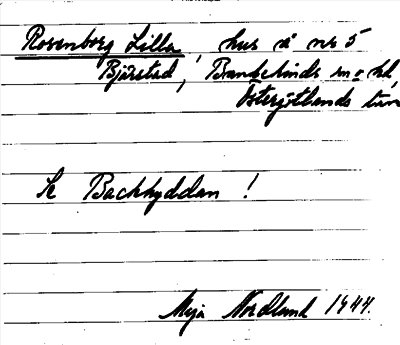 Rosenborg Lilla, hus å nr 5
Bjärstad, Bankekinds sn o hd,
Östergötlands län
Se Backhyddan!
Maja Nordlund 1944.